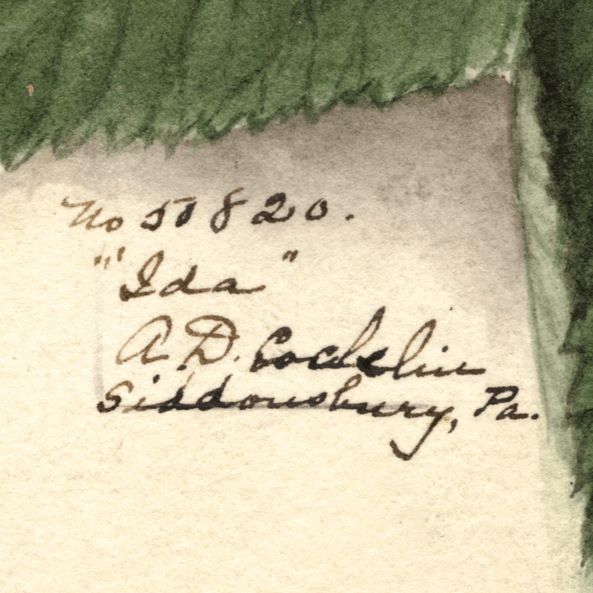 No 50820.
"Ida"
A. D. Cocklin
Siddonsbury, Pa.